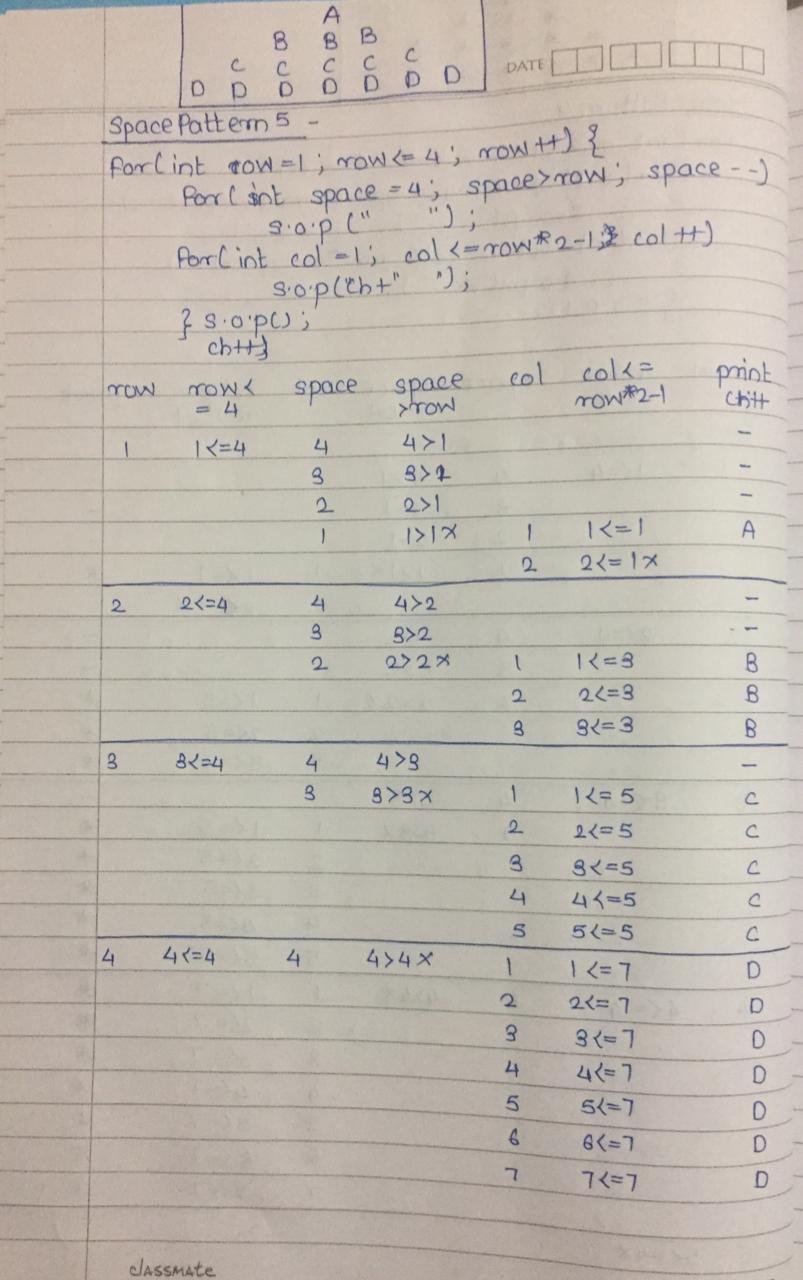 A
B B B
C C C C C
D D D D D D D
DATE
Space Pattern 5 -
for(int row=1; row<=4; row++) {
for(int space=4; space>row; space--)
s.o.p(" ");
for(int col=1; col<=row*2-1; col++)
s.o.p(ch+" ");
} s.o.p();
ch++}
row row<=4 space space>row col col<=row*2-1 print ch++
1 1<=4 4 4>1 -
3 3>1 -
2 2>1 -
1 1>1x 1 1<=1 A
2 2<=1x
2 2<=4 4 4>2 -
3 3>2 -
2 2>2x 1 1<=3 B
2 2<=3 B
3 3<=3 B
3 3<=4 4 4>3 -
3 3>3x 1 1<=5 C
2 2<=5 C
3 3<=5 C
4 4<=5 C
5 5<=5 C
4 4<=4 4 4>4x 1 1<=7 D
2 2<=7 D
3 3<=7 D
4 4<=7 D
5 5<=7 D
6 6<=7 D
7 7<=7 D
classmate